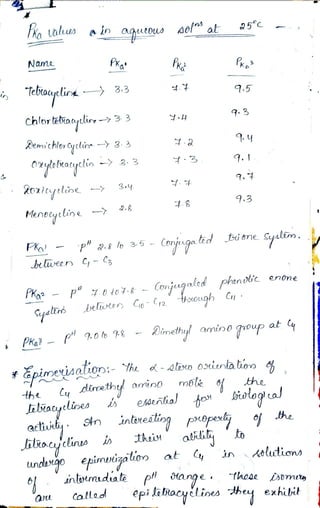 Pka values in aqueous solns at 25°C
Name Pka1 Pka2 Pka3
Tetracycline → 3.3 7.7 9.5
Chlortetracycline → 3.3 7.4 9.3
Demichlorcyclin → 3.3 7.2 9.4
Oxytetracyclin → 3.3 7.3 9.1
Doxicycline → 3.4 7.7 9.7
Menocycline → 2.8 7.8 9.3
PKa1 – pH 2.8 to 3.5 – Conjugated trione System.
between C1 – C3
PKa2 – pH 7.0 to 7.8 – Conjugated phenolic enone
System between C10 – C12 through C11.
PKa3 – pH 9.0 to 9.8 – Dimethyl amino group at C4
* Epimerisation:- The α-stereo orientation of
the C4 dimethyl amino motie of the
tetracyclines is essential for biological
activity. An interesting property of the
tetracyclines is their ability to
undergo epimerization at C4 in solutions
of intermediate pH range. These isomers
are called epitetracyclines they exhibit